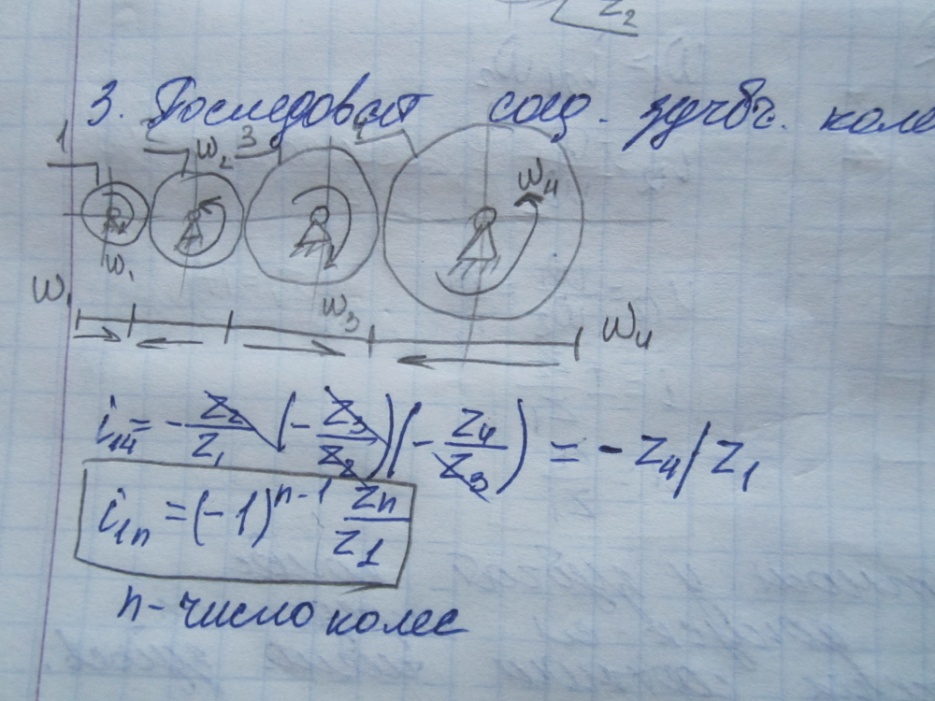 z₂
3. Последоват соед. зубч. коле
1 2 ω₂ 3 4 ω₄
ω₁
ω₁ ω₃ ω₄
i₁₄ = - z₂/z₁ (- z₃/z₂)(- z₄/z₃) = - z₄/z₁
i₁ₙ = (-1)ⁿ⁻¹ zₙ/z₁
n - число колес